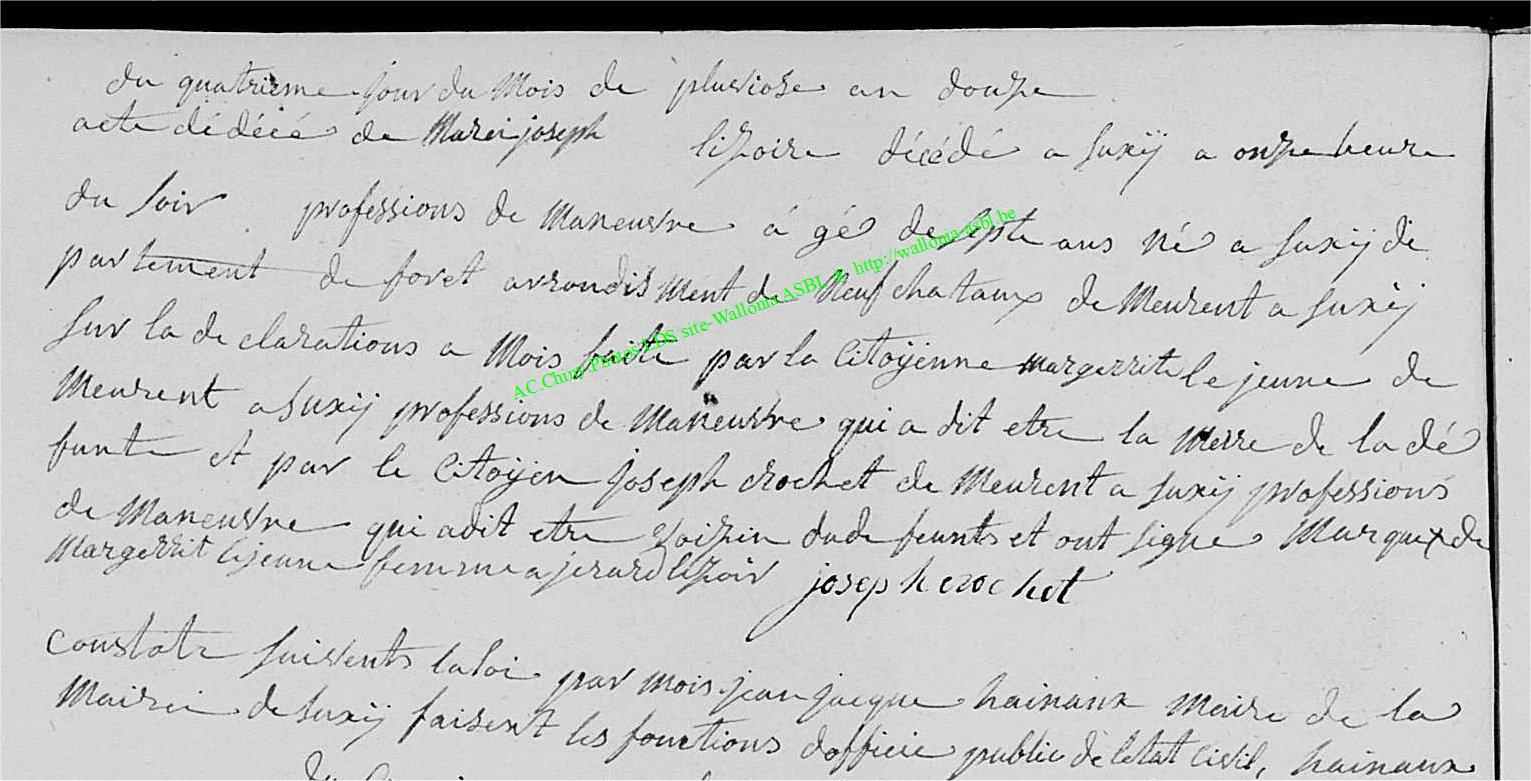 du quatrieme jour du Mois de pluviose an douze
acte dédécé de Marei joseph lizoire décédé a suxÿ a onze heure
du soir professions de Maneuvre á gé de septe ans né a suxÿ dé
partement de foret arrondis ment de Neuf chataux de Meurent a suxÿ
sur la de clarations a Mois faite par la Citoÿenne Margerrite le jeune de
Meurent a suxÿ professions de Maneuvre qui a dit etre la Merre de la dé
funte et par le Citoÿen joseph crochet de Meurent a suxÿ professions
de Maneuvre qui a dit etre voizin du de feunts et ont signe Marque x de
Margerrit lejeune femme a jerard lizoir joseph crochet
Constate suivents la loi par mois jean jacque hainaux Maire de la
Mairie de suxÿ faisent les fonctions dofficie public de letat civil, hainaux
AC Chiny Photos LDS site-Wallonia ASBL http://wallonia-asbl.be